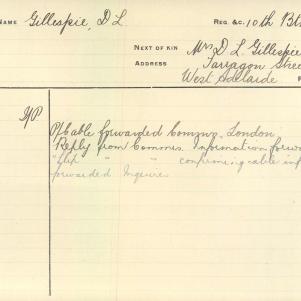 NAME Gillespie, D L
REG. &C. 10th Bt
NEXT OF KIN Mrs D L Gillespie
ADDRESS Tarragon Stree
West Adelaide
Cable forwarded London
Reply from Commns. Information forwa
" " confirming cable inf
forwarded Inquirer